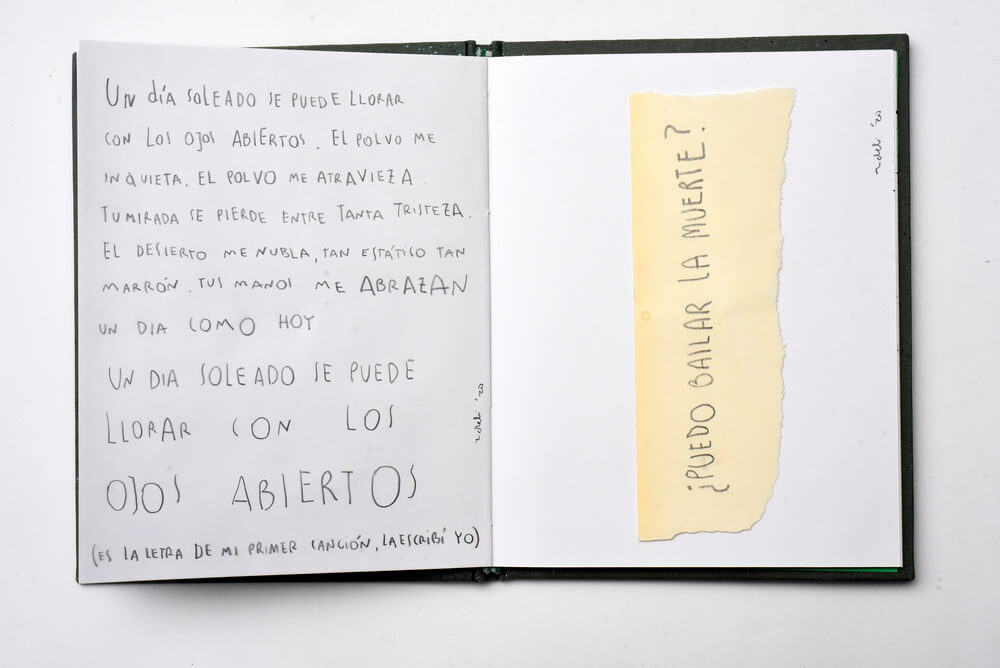 UN día SOLEADO SE PUEDE LLORAR
CON LOS OJOS ABIERTOS. EL POLVO ME
INQUIETA. EL POLVO ME ATRAVIEZA.
TU MIRADA SE PIERDE ENTRE TANTA TRISTEZA.
EL DESIERTO ME NUBLA, TAN ESTÁTICO TAN
MARRÓN. TUS MANOS ME ABRAZAN
UN DIA COMO HOY
UN DIA SOLEADO SE PUEDE
LLORAR CON LOS
OJOS ABIERTOS
(ES LA LETRA DE MI PRIMER CANCIÓN, LA ESCRIBÍ YO)
'20
¿PUEDO BAILAR LA MUERTE?
'20